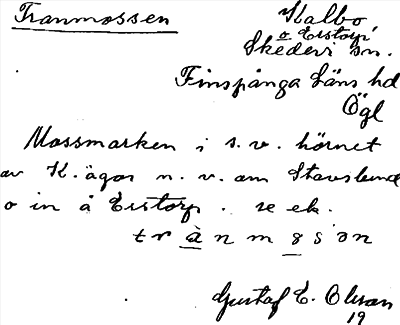 Tranmossen
Kalbo
o Erstorp
Skedevi sn.
Finspånga läns hd
Ögl
Mossmarken i s.v. hörnet
av K. ägor n.v. om
o in å Erstorp. se ek.
trànmosən
Gustaf E. Olsson
19